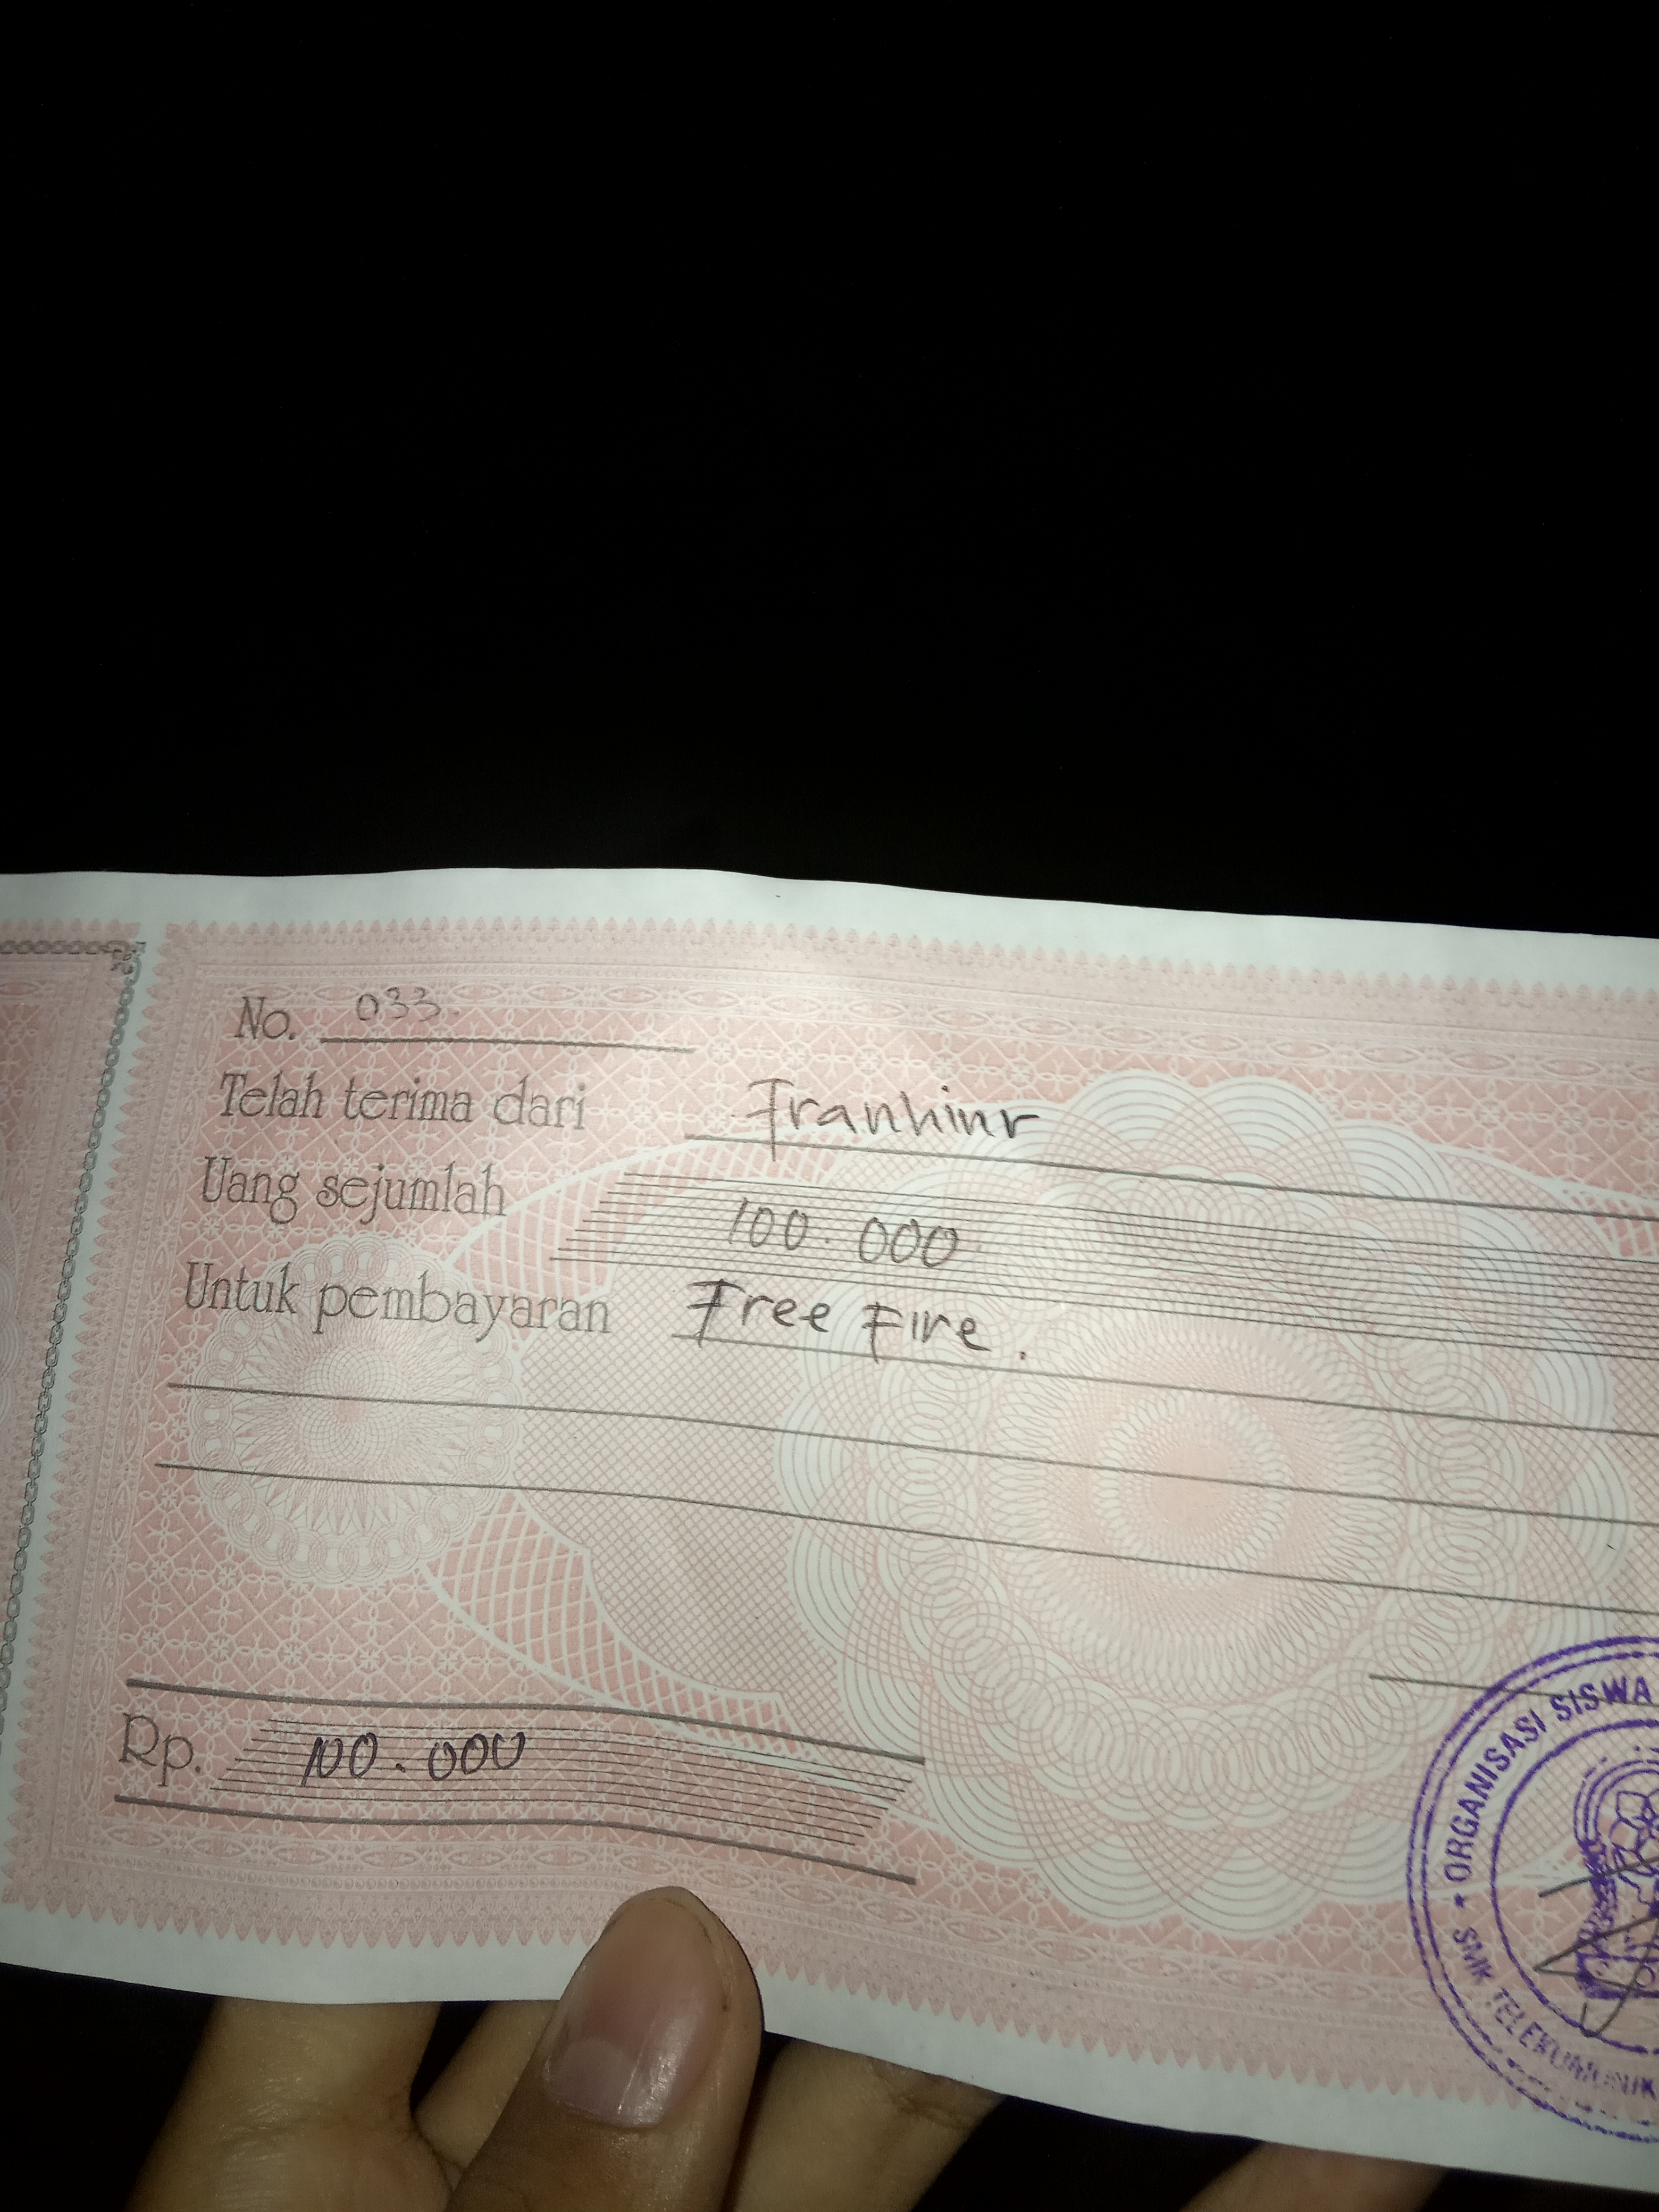 No. 033.
Telah terima dari Franhinr
Uang sejumlah 100.000
Untuk pembayaran Free Fire.
Rp. 100.000
* ORGANISASI SISWA
SMK TELEKOMUNIK